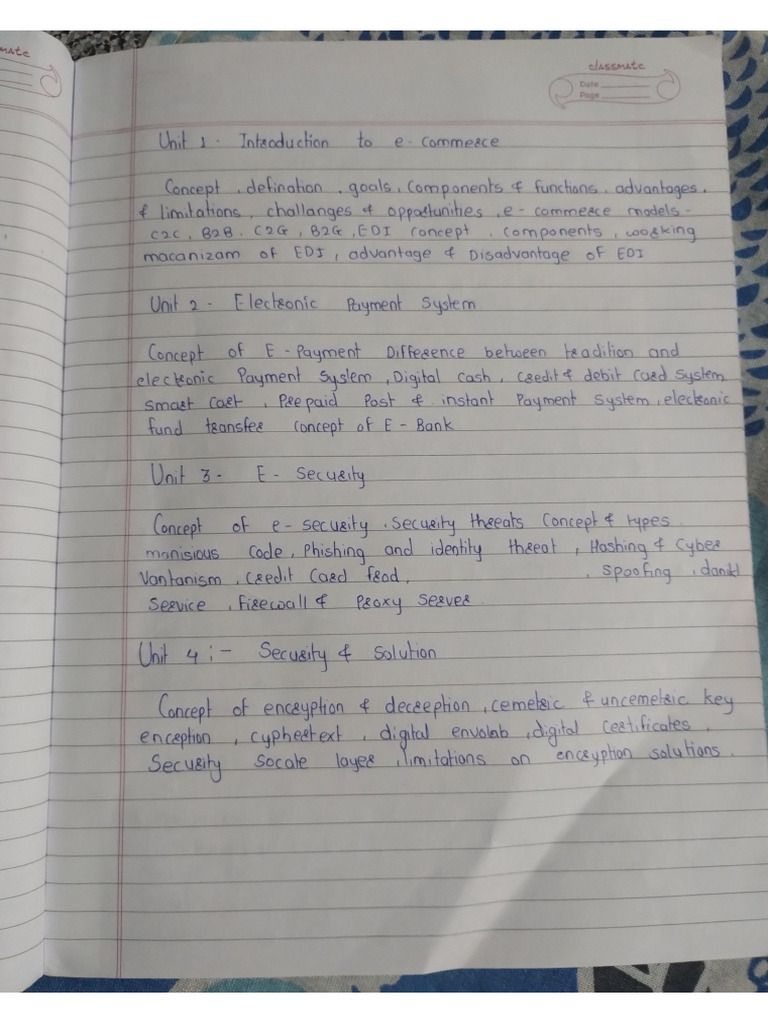 mate
classmate
Date
Page
Unit 1. Introduction to e-commerce
Concept, defination, goals, components & functions, advantages,
& limitations, challanges & oppoetunities, e-commerce models-
C2C, B2B, C2G, B2G, EDI concept, components, working
macanizam of EDI, advantage & Disadvantage of EDI
Unit 2 - Electronic Payment System
Concept of E-Payment Difference between tradition and
electronic Payment System, Digital cash, credit & debit card system
smart cart, Prepaid Post & instant Payment System, electronic
fund transfer concept of E-Bank
Unit 3- E-Security
Concept of e-security, Security threats concept & types
manisious code, Phishing and identity threat, Hashing & Cyber
Vantanism, Credit Card frod, , spoofing,
Service, Firewall & Proxy Server
Unit 4:- Security & Solution
Concept of encryption & decreeption, cemetric & uncemetric key
enception, cyphertext, digital envolab, digital certificates,
Security Socate layer, limitations on encryption solutions.